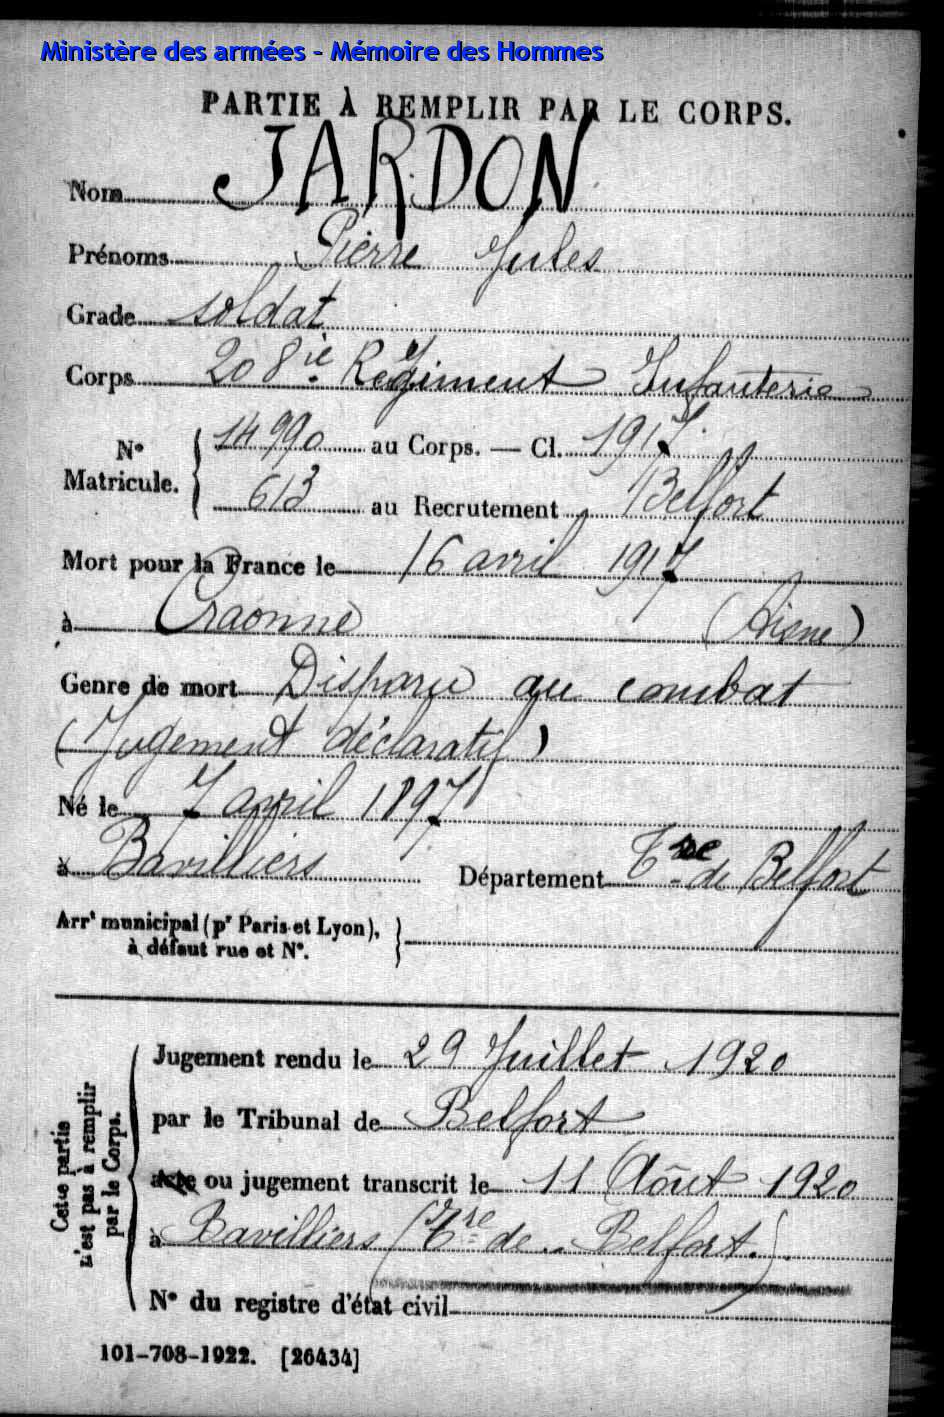 Ministère des armées - Mémoire des Hommes
PARTIE À REMPLIR PAR LE CORPS.
Nom JARDON
Prénoms Pierre Jules
Grade soldat
Corps 208ie Régiment Infanterie
N° Matricule. { 14990 au Corps. — Cl. 1917
613 au Recrutement Belfort
Mort pour la France le 16 avril 1917
à Craonne (Aisne)
Genre de mort Disparu au combat
(Jugement déclaratif)
Né le 7 avril 1897
à Bavilliers Département Tre de Belfort
Arrt municipal (pr Paris et Lyon),
à défaut rue et N°.
Cette partie n'est pas à remplir par le Corps.
Jugement rendu le 29 Juillet 1920
par le Tribunal de Belfort
acte ou jugement transcrit le 11 Août 1920
à Bavilliers (Tre de Belfort.)
N° du registre d'état civil
101-708-1922. [26434]